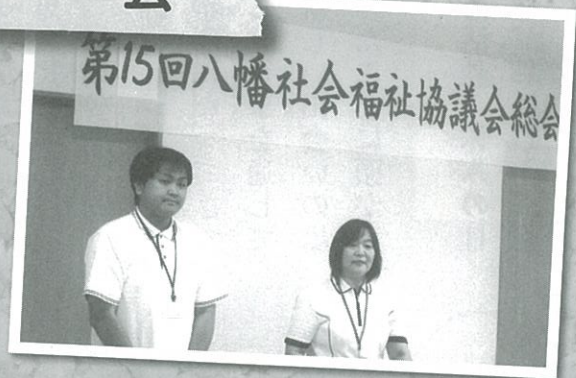 会
第15回八幡社会福祉協議会総会